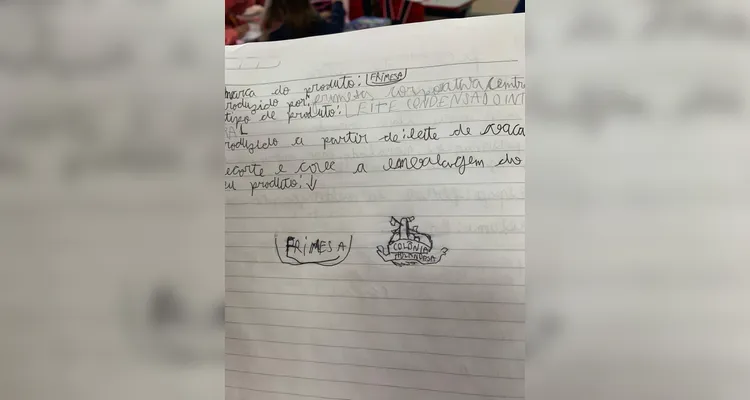 marca do produto: FRIMESA
roduzido por: frimesa cooperativa centr
tipo de produto: LEITE CONDENSADO INT
RAL
roduzido a partir de: leite de vaca
ecorte e cole a embalagem do
eu produto: ↓
FRIMESA
COLÔNIA
HOLANDESA